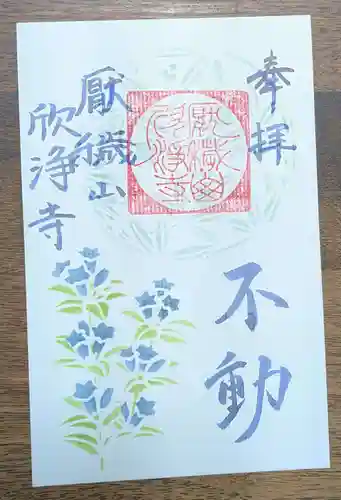 奉拝
不動
厭穢山
欣浄寺